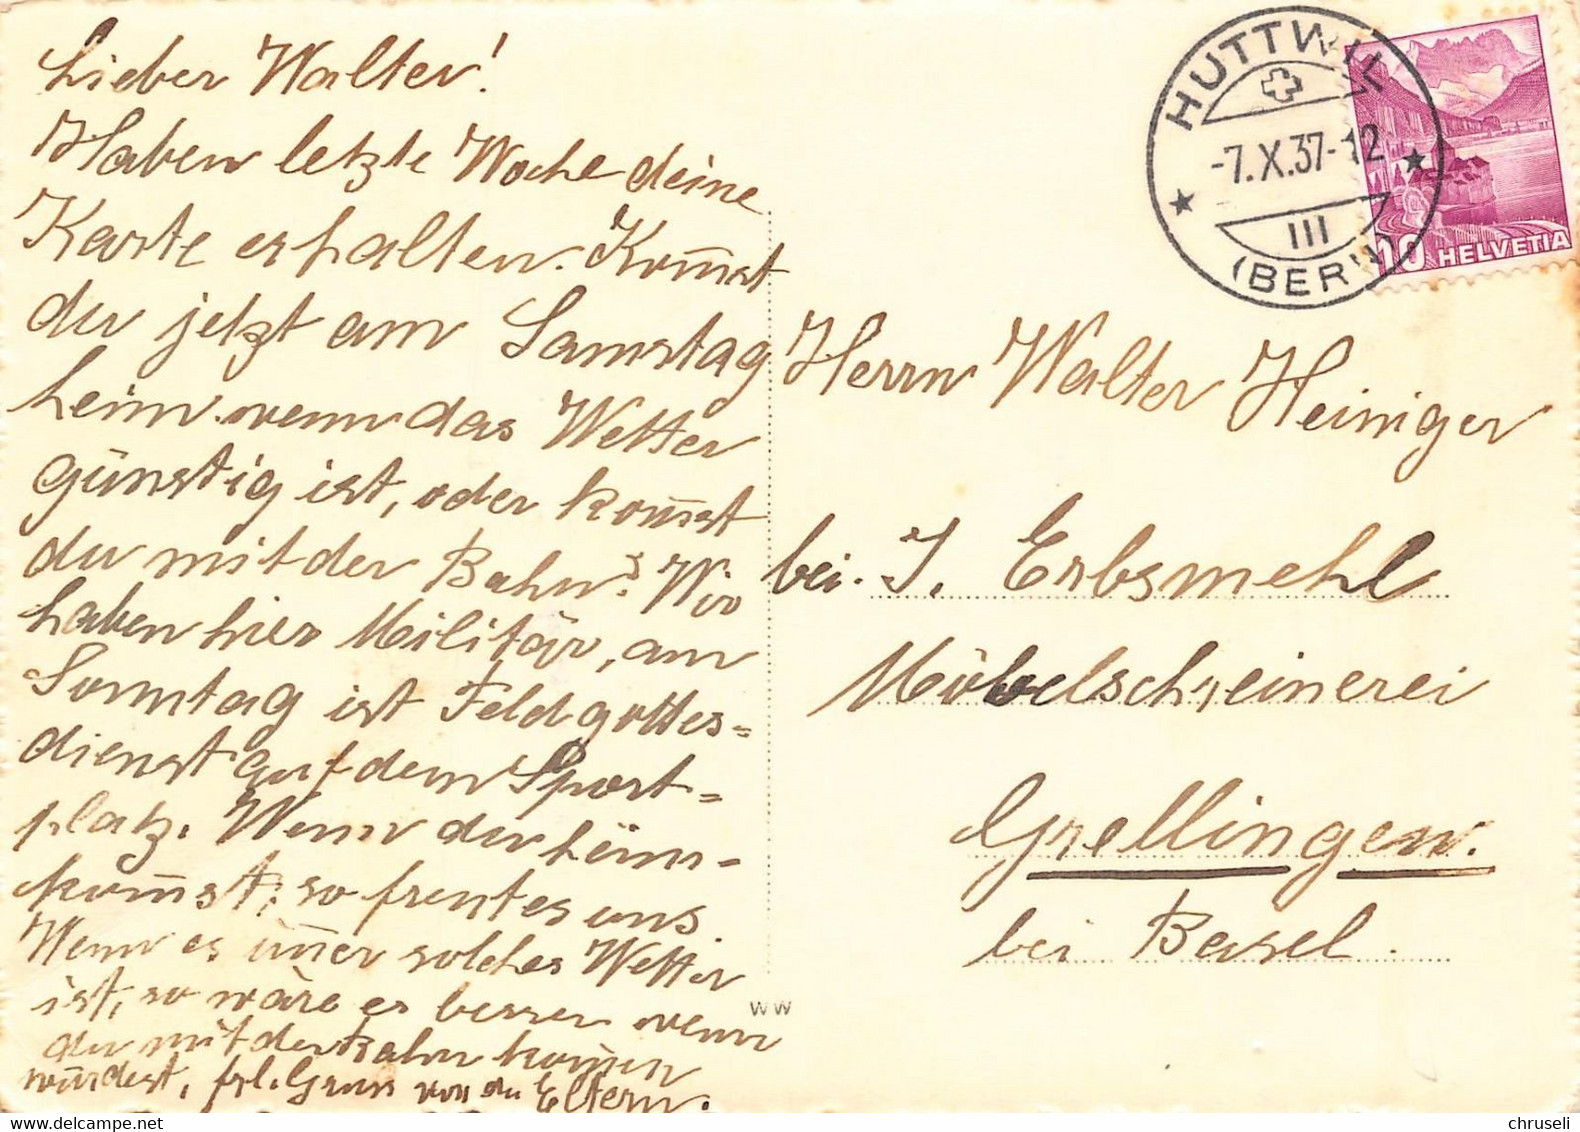 Lieber Walter!
Haben letzte Woche deine
Karte erhalten. Kom̄st
du jetzt am Samstag
heim wenn das Wetter
günstig ist, oder kom̄st
du mit der Bahn? Wir
haben hier Militär, am
Sonntag ist Feldgottes=
dienst auf dem Sport=
platz. Wenn du heim=
kom̄st, so freut es uns
Wenn es im̄er solches Wetter
ist, so wäre es besser wenn
du mit der Bahn kom̄en
würdest, frl. Gruss von den Eltern.
HUTTWIL
-7.X.37-12
III
(BERN)
10 HELVETIA
Herrn Walter Heiniger
bei. J. Erbsmehl
Möbelschreinerei
Grellingen.
bei Basel.
WW
delcampe.net
chruseli